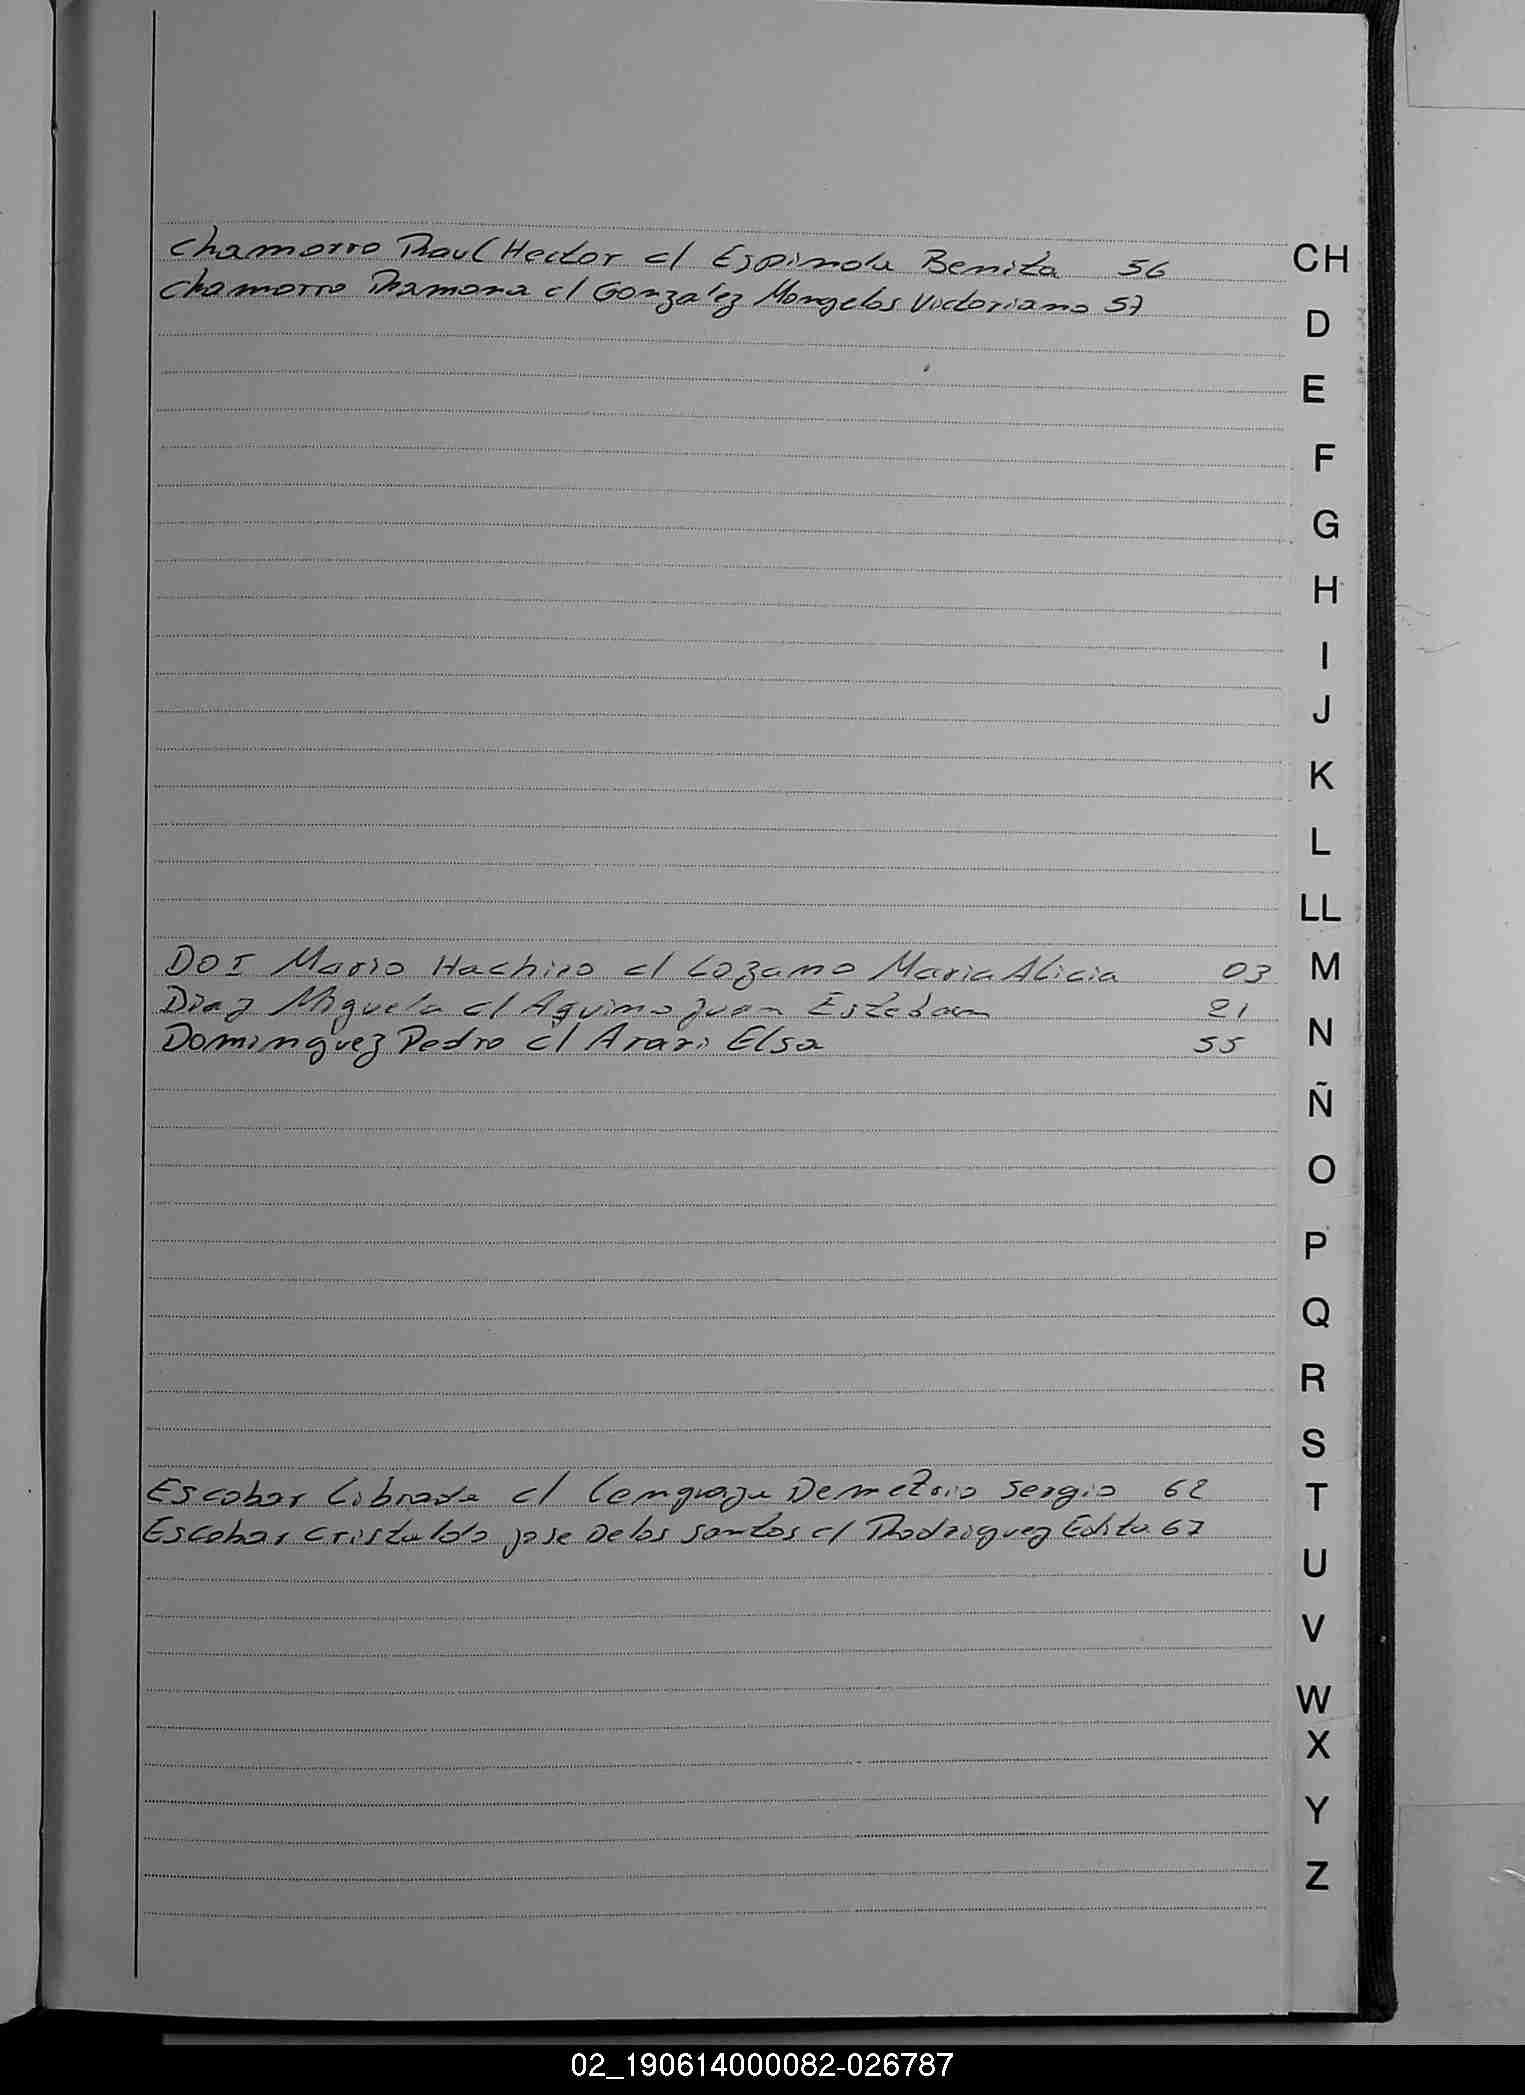 Chamorro Raul Hector c/ Espinola Benita 56
Chamorro Ramona c/ González Mongelos Victoriano 57
Doi Mario Hachiro c/ Lozano Maria Alicia 03
Diaz Miguela c/ Aquino Juan Esteban 21
Dominguez Pedro c/ Arari Elsa 55
Escobar Librada c/ Lenguaza Demetrio Sergio 62
Escobar Cristaldo jose Delos Santos c/ Rodriguez Edita 67
CH
D
E
F
G
H
I
J
K
L
LL
M
N
Ñ
O
P
Q
R
S
T
U
V
W
X
Y
Z
02_190614000082-026787